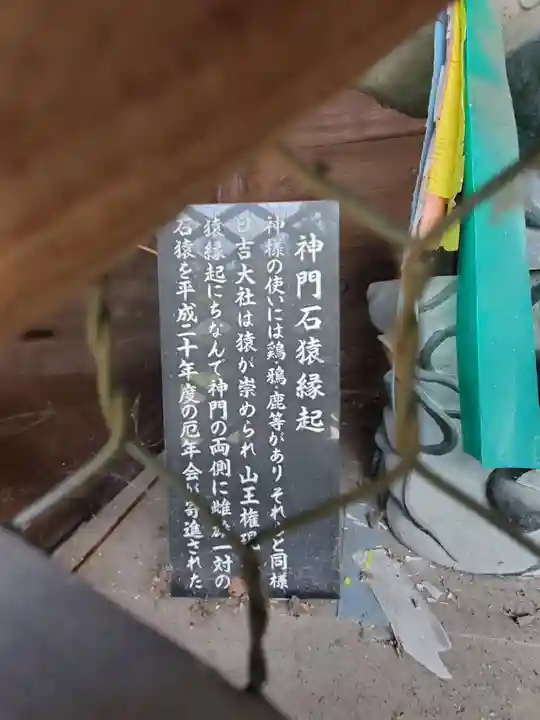 神門石猿縁起
神様の使いには鶏・鴉・鹿等があり それ と同様
日吉大社は猿が崇められ 山王権現
猿縁起にちなんで神門の両側に雌 一対の
石猿を平成二十年度の厄年会 寄進された